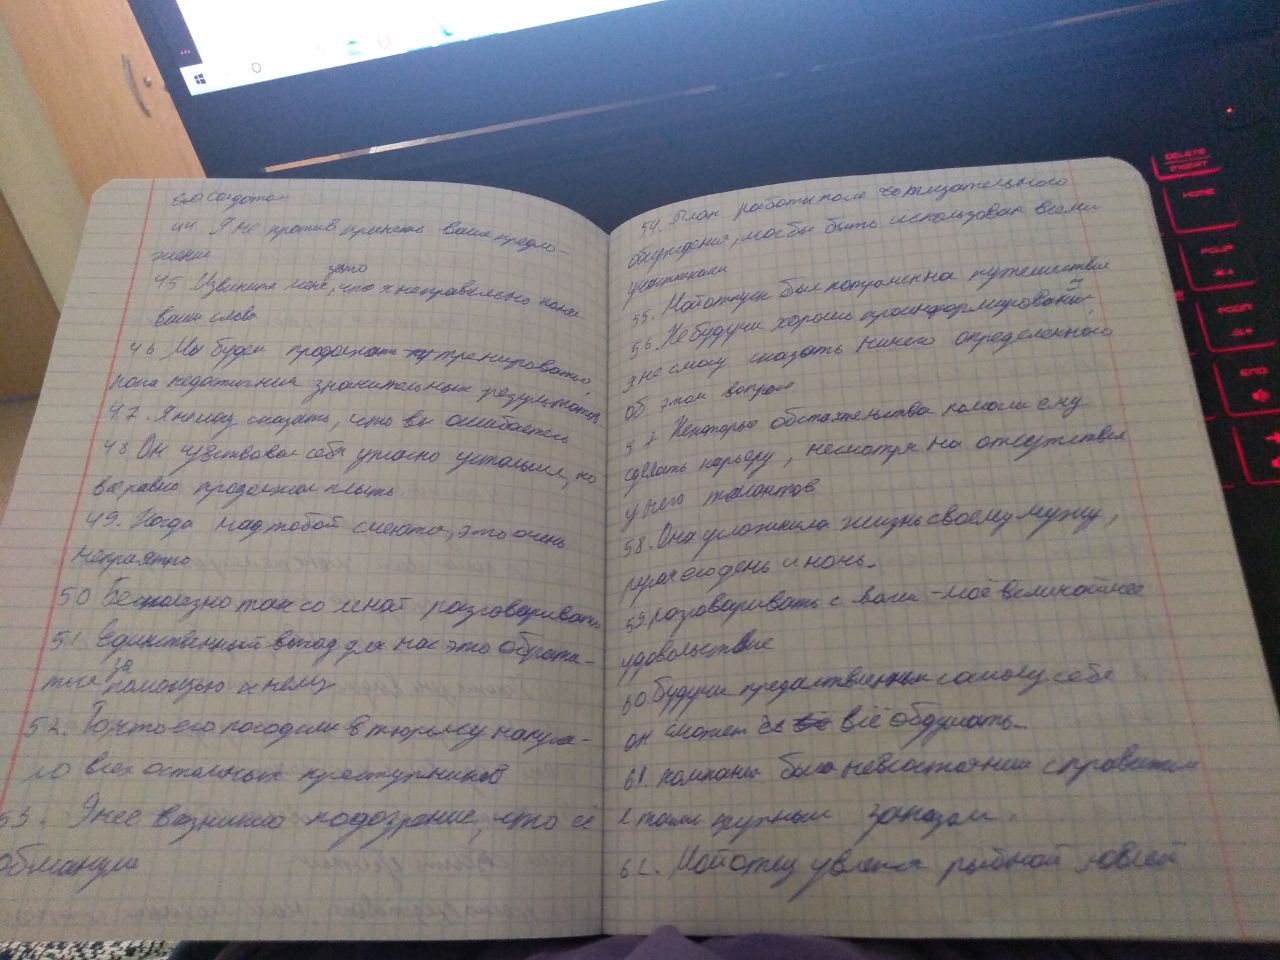 его солдатом
44. Я не против принять ваше предло-
жение
45 Извините меня за то, что я неправильно понял
ваши слова
46 Мы будем продолжать тренироваться
пока не достигнем значительных результатов
47. Я не могу сказать, что вы ошибаетесь
48. Он чувствовал себя ужасно усталым, но
всё равно продолжал плыть.
49. Когда над тобой смеются, это очень
неприятно
50 Бесполезно так со мной разговаривать
51 Единственный выход для нас это обрати-
ться за помощью к нему
52. То, что его посадили в тюрьму напуга-
ло всех остальных преступников
53. У неё возникло подозрение, что её
обманули
54. План работы после
обсуждения, мог бы быть использован всеми
участниками
55. Мой отпуск был потрачен на путешествие
56. Не будучи хорошо проинформированный
я не смогу сказать ничего определенного
об этом вопросе
57 Некоторые обстоятельства помогли ему
сделать карьеру, несмотря на отсутствие
у него талантов
58. Она усложнила жизнь своему мужу,
ругая его день и ночь.
59 разговаривать с вами - моё величайшее
удовольствие
60 Будучи предоставленным самому себе
он может всё обдумать.
61. компания была не в состоянии справиться
с таким крупным заказом.
62. Мой отец увлечён рыбной ловлей
DELETE
INSERT
HOME
PGUP
PGDN
END